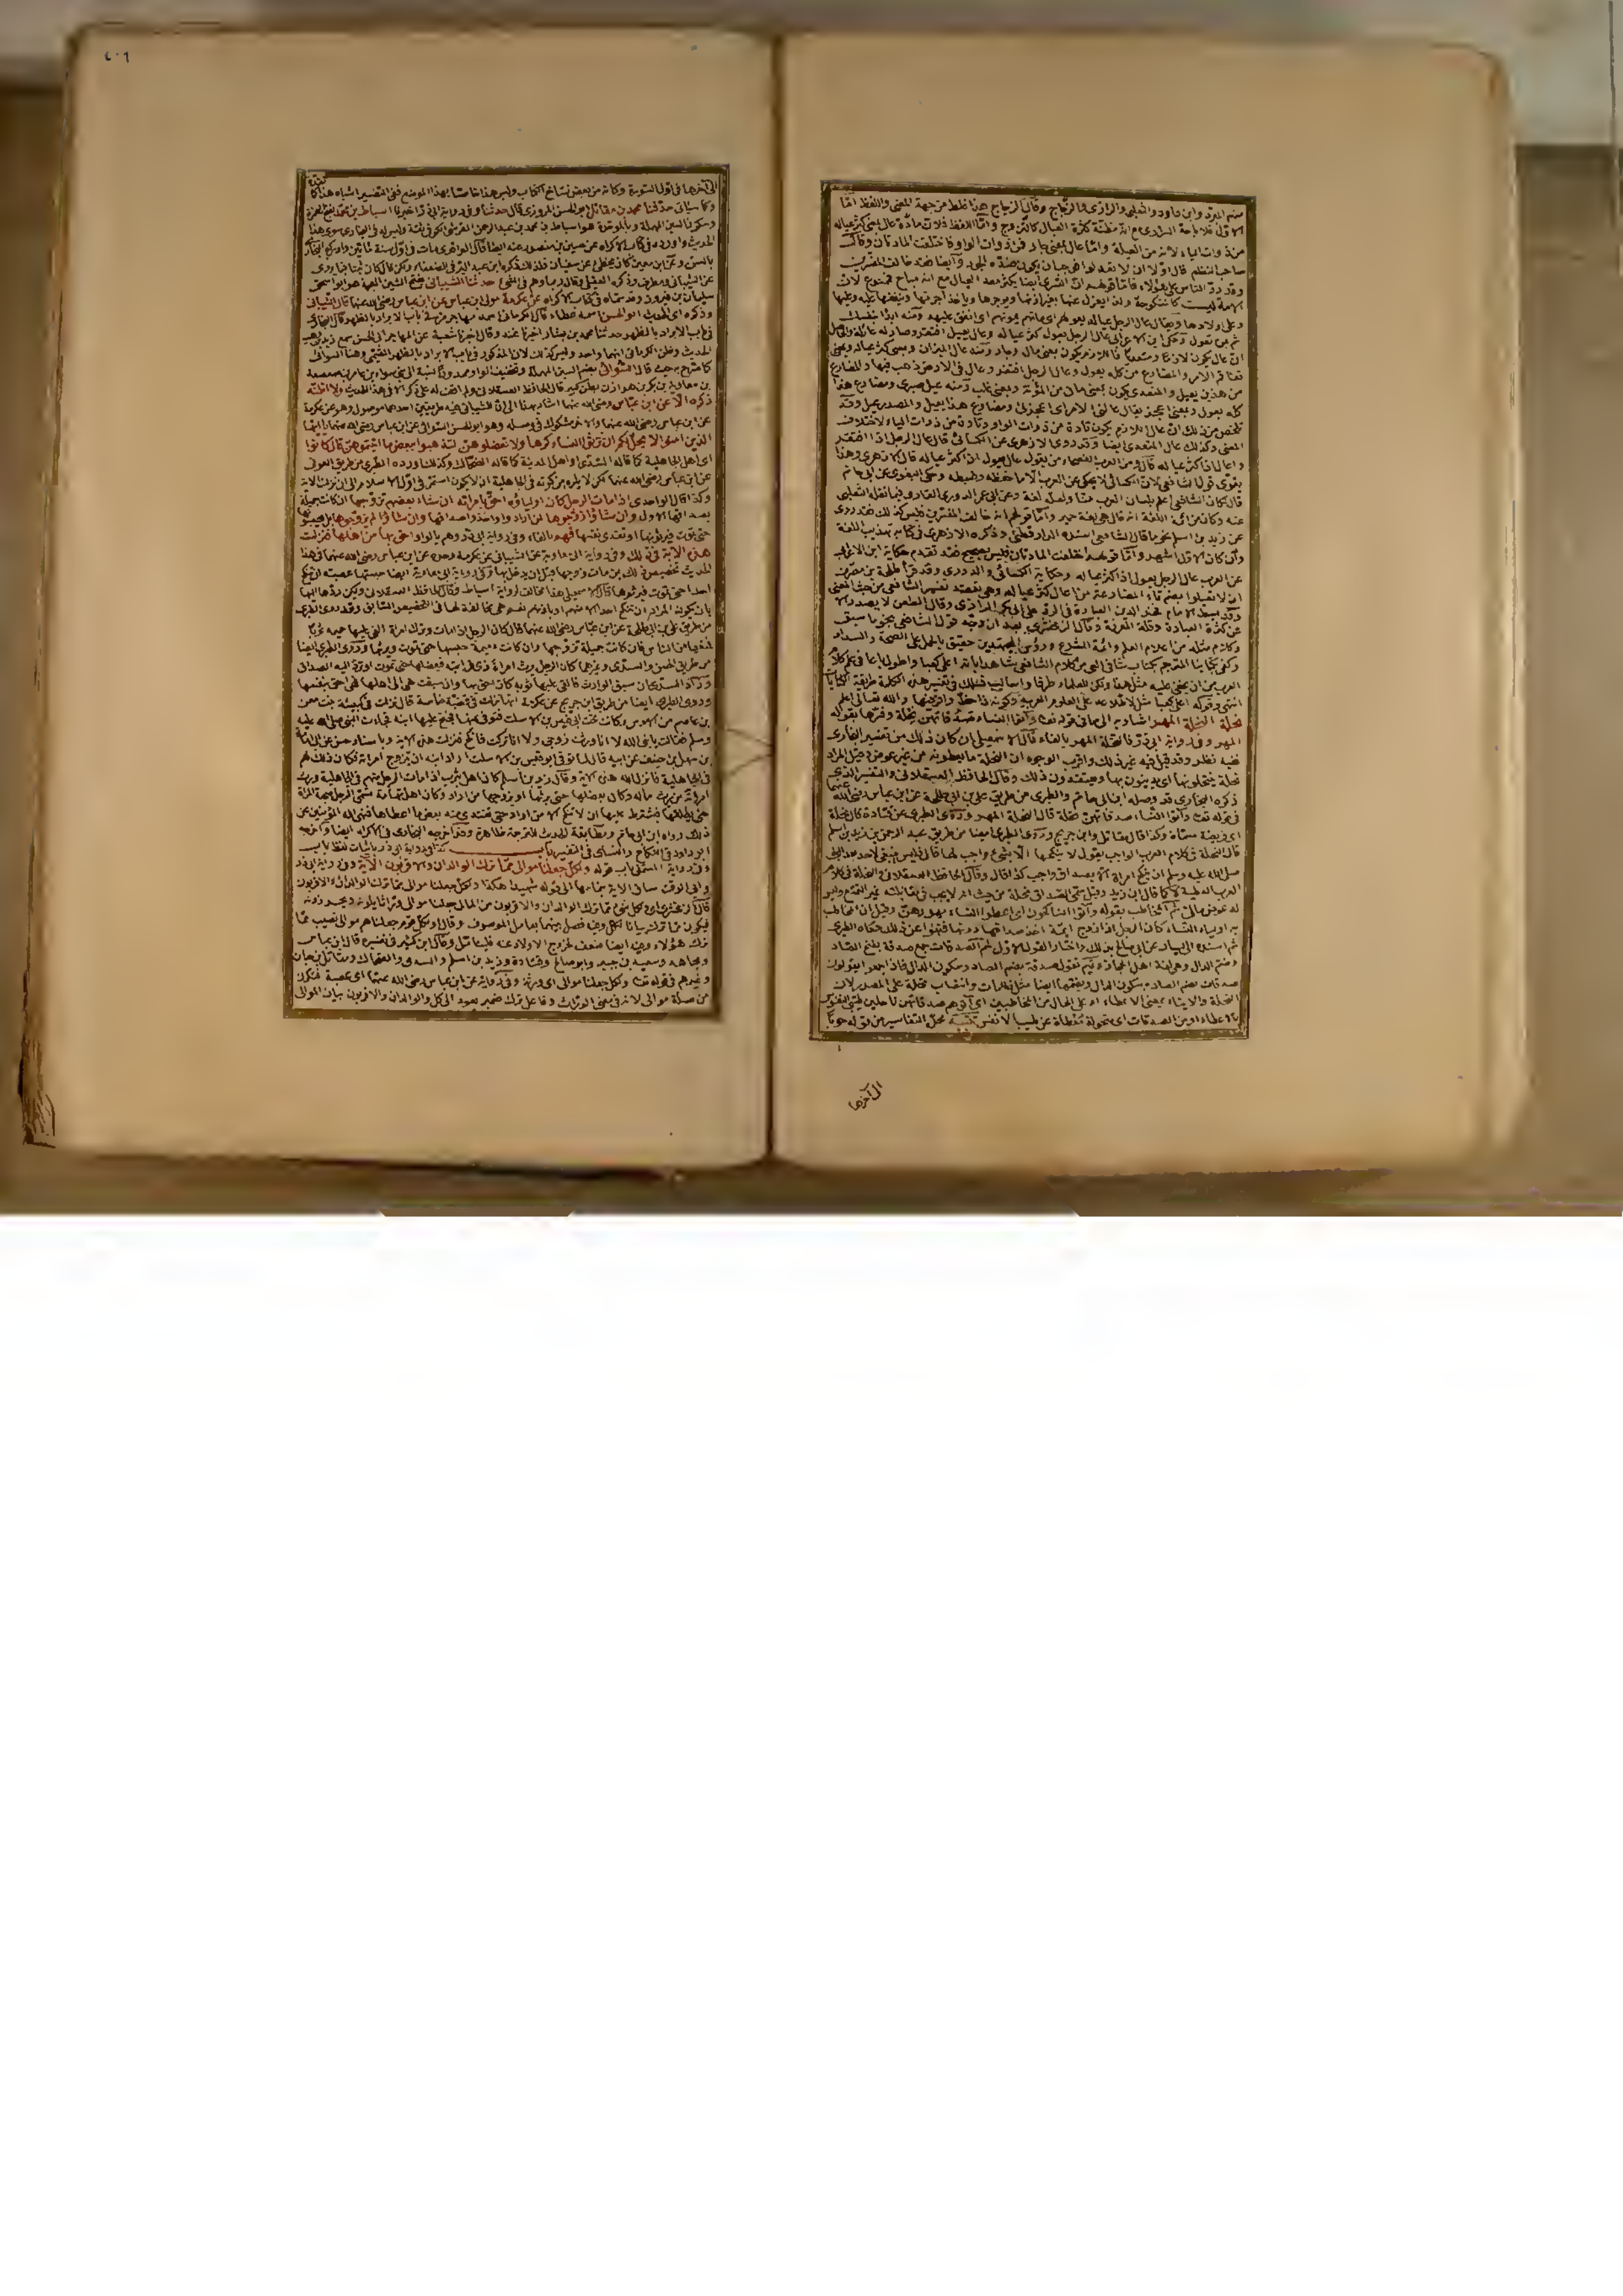 منهم المبرد وابن داود والثعلبي والرازي والزجاج وقال الزجاج هذا غلط من جهة المعنى واللفظ أما
الأول فلإباحة السراري مع أنه مظنة كثرة العيال كالتزوج وأما اللفظ فلأن مادة عال بمعنى كثر عياله
من ذوات الياء لأنه من العيلة وأما عال بمعنى جار فمن ذوات الواو فاختلفت المادتان وقال
صاحب النظم قال أولا أن لا تعدلوا فوجب أن يكون ضده الجور وأيضا فقد خالف المفسرين
وقد رد الناس على هؤلاء فأما قولهم أن التسري أيضا يكثر معه العيال مع أنه مباح فممنوع لأن
الأمة ليست كالمنكوحة ولذا يعزل عنها بغير إذنها ويؤجرها ويأخذ أجرتها وينفقها عليه وعليها
وعلى أولادها ويقال عال الرجل عياله يعولهم أي مانهم يمونهم أي أنفق عليهم ومنه ابدأ بنفسك
ثم بمن تعول وحكى ابن الأعرابي عال الرجل يعول كثر عياله وعال يعيل افتقر وصار له عائلة والحاصل
أن عال يكون لازما ومتعديا فاللازم يكون بمعنى مال وجار ومنه عال الميزان وبمعنى كثر عياله وبمعنى
تفاقم الأمر والمضارع من كله يعول وعال الرجل افتقر وعال في الأرض ذهب فيها والمضارع
من هذين يعيل والمتعدي يكون بمعنى مان من المؤنة وبمعنى غلب ومنه عيل صبري ومضارع هذا
كله يعول وبمعنى أعجز يقال عالني الأمر أي أعجزني ومضارع هذا يعيل والمصدر عيل وقد
تلخص من ذلك أن عال اللازم يكون تارة من ذوات الواو وتارة من ذوات الياء لاختلاف
المعنى وكذلك عال المتعدي أيضا وقد روى الأزهري عن الكسائي قال عال الرجل إذا افتقر
وأعال إذا كثر عياله قال ومن العرب الفصحاء من يقول عال يعول إذا كثر عياله قال الأزهري وهذا
يقوي قول الشافعي لأن الكسائي لا يحكي عن العرب إلا ما حفظه وضبطه وحكى البغوي عن أبي حاتم
قال كان الشافعي أعلم بلسان العرب منا ولعله لغة وعن أبي عمر الدوري القاري فيما نقله الثعلبي
عنه وكان من أئمة اللغة أنه قال هي لغة حمير وأما قولهم أنه خالف المفسرين فليس كذلك فقد روي
عن زيد بن أسلم نحو ما قال الشافعي أسنده الدارقطني وذكره الأزهري في كتابه تهذيب اللغة
وإن كان الأول أشهر وأما قولهم اختلفت المادتان فليس بصحيح فقد تقدم حكاية ابن الأعرابي
عن العرب عال الرجل يعول إذا كثر عياله وحكاية الكسائي والدوري وقد قرأ طلحة بن مصرف
أن لا تعيلوا بضم تاء المضارعة من أعال كثر عياله وهي تعضد تفسير الشافعي من حيث المعنى
وقد بسط الإمام فخر الدين العبارة في الرد على أبي بكر الرازي وقال الطعن لا يصدر إلا
عن كثرة الغباوة وقلة المعرفة وقال الزمخشري بعد أن وجه قول الشافعي بنحو ما سبق
وكلام مثله من أعلام العلم وأئمة الشرع ورؤس المجتهدين حقيق بالحمل على الصحة والسداد
وكفى بكتابنا المترجم بكتاب شافي العي من كلام الشافعي شاهدا بأنه أعلى كعبا وأطول باعا في علم كلام
العرب من أن يخفى عليه مثل هذا ولكن للعلماء طرقا وأساليب فسلك في تفسير هذه الكلمة طريقة الكنايات
انتهى وقوله أعلى كعبا مثل لاطلاعه على العلوم العربية وكونه ذا حظ وافر منها والله تعالى أعلم
نحلة النحلة المهر أشار به إلى ما في قوله تعالى وآتوا النساء صدقاتهن نحلة وفسرها بقوله
المهر وفي رواية أبي ذر فالنحلة المهر بالفاء قال الإسماعيلي إن كان ذلك من تفسير البخاري
ففيه نظر وقد قيل فيه غير ذلك وأقرب الوجوه أن النحلة ما يعطونه من غير عوض وقيل المراد
نحلة ينتحلونها أي يدينون بها ويعتقدون ذلك وقال الحافظ العسقلاني والتفسير الذي
ذكره البخاري قد وصله ابن أبي حاتم والطبري من طريق علي بن أبي طلحة عن ابن عباس رضي الله عنهما
في قوله تعالى وآتوا النساء صدقاتهن نحلة قال النحلة المهر وروى الطبري عن قتادة قال نحلة
أي فريضة مسماة وكذا قال مقاتل وابن جريج وروى الطبري أيضا من طريق عبد الرحمن بن زيد بن أسلم
قال النحلة في كلام العرب الواجب يقول لا ينكحها إلا بشيء واجب لها قال وليس ينبغي لأحد بعد النبي
صلى الله عليه وسلم أن ينكح امرأة إلا بصداق واجب كذا قال وقال الحافظ العسقلاني والنحلة في كلام
العرب العطية لا كما قال ابن زيد وقيل سمي الصداق نحلة من حيث أنه لا يجب في مقابلته غير التمتع دون
له عوض مالي ثم المخاطب بقوله وآتوا الناكحون أي أعطوا النساء مهورهن وقيل أن المخاطب
به أولياء النساء كان الرجل إذا زوج ابنته أخذ صداقها دونها فنهوا عن ذلك حكاه الطبري
ثم أسنده إلى سيار عن أبي صالح بذلك واختار القول الأول ثم الصدقات جمع صدقة بفتح الصاد
وضم الدال وهي لغة أهل الحجاز وتميم تقول صدقة بضم الصاد وسكون الدال فإذا جمعوا يقولون
صدقات بضم الصاد وسكون الدال وبضمها أيضا مثل ظلمات وانتصاب نحلة على المصدر لأن
النحلة والإيتاء بمعنى الإعطاء أو على الحال من المخاطبين أي آتوهن صدقاتهن ناحلين طيبي النفوس
بالإعطاء أو من الصدقات أي منحولة معطاة عن طيب الأنفس محل التفاسير من قوله حوبا
إلى آخرها
٤٠٦
إلى آخرها في أول السورة وكأنه من بعض نساخ الكتاب وليس هذا خاصا بهذا الموضع ففي التفسير أشباه هذا
وكما سيأتي حدثنا محمد بن مقاتل أبو الحسن المروزي قال حدثنا وفي رواية أبي ذر أخبرنا أسباط بن محمد بفتح الهمزة
وسكون السين المهملة وبالموحدة هو أسباط بن محمد بن عبد الرحمن القرشي الكوفي ثقة وليس له في البخاري سوى هذا
الحديث وأورده في كتاب الإكراه عن حسين بن منصور عنه أيضا قال الواقدي مات في أول سنة مائتين وأدركه البخاري
بالسن وعن ابن معين كان يخطئ عن سفيان فلذلك ذكره ابن عبد البر في الضعفاء ولكن قال كان ثبتا فيما روى
عن الشيباني ومطرف وذكره العقيلي وقال ربما وهم في الشيء حدثنا الشيباني بفتح الشين المعجمة هو أبو إسحق
سليمان بن فيروز وقد سماه في كتاب الإكراه عن عكرمة مولى ابن عباس عن ابن عباس رضي الله عنهما قال الشيباني
وذكره أي الحديث أبو الحسن اسمه عطاء قال الكرماني اسمه مهاجر مر في باب الإبراد بالظهر قال البخاري
في باب الإبراد بالظهر حدثنا محمد بن بشار أخبرنا غندر وقال أخبرنا شعبة عن المهاجر أبي الحسن سمع زيد بن وهب
الحديث وظن الكرماني أنهما واحد وليس كذلك لأن المذكور في باب الإبراد بالظهر التيمي وهذا السوائي
كما صرح به حيث قال السوائي بضم السين المهملة وتخفيف الواو ممدودا نسبة إلى بني سواءة بن عامر بن صعصعة
بن معاوية بن بكر بن هوازن بطن كبير قال الحافظ العسقلاني ولم أقف له على ذكر إلا في هذا الحديث ولا أظنه
ذكره إلا عن ابن عباس رضي الله عنهما أشار بهذا إلى أن للشيباني فيه طريقين أحدهما موصول وهو عن عكرمة
عن ابن عباس رضي الله عنهما والآخر مشكوك في وصله وهو أبو الحسن السوائي عن ابن عباس رضي الله عنهما يا أيها
الذين آمنوا لا يحل لكم أن ترثوا النساء كرها ولا تعضلوهن لتذهبوا ببعض ما آتيتموهن قال كانوا
أي أهل الجاهلية كما قاله السدي أو أهل المدينة كما قاله الضحاك وكذلك أورده الطبري من طريق العوفي
عن ابن عباس رضي الله عنهما لكن لا يلزم من كونه في الجاهلية أن لا يكون استمر في أول الإسلام إلى أن نزلت الآية
وكذا قال الواحدي إذا مات الرجل كان أولياؤه أحق بامرأته إن شاء بعضهم تزوجها إن كانت جميلة
بصداقها الأول وإن شاؤا زوجوها لمن أراد وأخذوا صداقها وإن شاؤا لم يزوجوها بل يحبسونها
حتى تموت فيرثونها أو تفتدي نفسها فهم بالفاء وفي رواية أبي ذر وهم بالواو أحق بها من أهلها فنزلت
هذه الآية في ذلك وفي رواية أبي معاوية عن الشيباني عن عكرمة وحده عن ابن عباس رضي الله عنهما في هذا
الحديث تخصيص ذلك بمن مات زوجها قبل أن يدخل بها وفي رواية أبي معاوية أيضا حبستها عصبته أن تنكح
أحدا حتى تموت فيرثوها قال الإسماعيلي هذا مخالف لرواية أسباط وقال الحافظ العسقلاني ويمكن ردها إليها
بأن يكون المراد أن تنكح أحدا إلا منهم أو بإذنهم نعم هي مخالفة لها في التخصيص السابق وقد روى الطبري
من طريق علي بن أبي طلحة عن ابن عباس رضي الله عنهما قال كان الرجل إذا مات وترك امرأة ألقى عليها حميمه ثوبا
فمنعها من الناس فإن كانت جميلة تزوجها وإن كانت دميمة حبسها حتى تموت ويرثها وروى الطبري أيضا
من طريق الحسن والسدي وغيرهما كان الرجل يرث امرأة ذي قرابته فيعضلها حتى تموت أو ترد إليه الصداق
وزاد السدي إن سبق الوارث فألقى عليها ثوبه كان أحق بها وإن سبقت هي إلى أهلها فهي أحق بنفسها
وروى الطبري أيضا من طريق ابن جريج عن عكرمة أنها نزلت في قصة خاصة قال نزلت في كبيشة بنت معن
بن عاصم من الأوس وكانت تحت أبي قيس بن الأسلت فتوفي عنها فجنح عليها ابنه فجاءت النبي صلى الله عليه
وسلم فقالت يا نبي الله لا أنا ورثت زوجي ولا أنا تركت فأنكح فنزلت هذه الآية وبإسناد حسن عن أبي أمامة
بن سهل بن حنيف عن أبيه قال لما توفي أبو قيس بن الأسلت أراد ابنه أن يتزوج امرأته فكان ذلك لهم
في الجاهلية فأنزل الله هذه الآية وقال زيد بن أسلم كان أهل يثرب إذا مات الرجل منهم في الجاهلية ورث
امرأته من يرث ماله وكان يعضلها حتى يرثها أو يزوجها من أراد وكان أهل تهامة يسيء الرجل صحبة المرأة
حتى يطلقها فيشترط عليها أن لا تنكح إلا من أراد حتى تفتدي منه ببعض ما أعطاها فنهى الله المؤمنين عن
ذلك رواه ابن أبي حاتم ومطابقة الحديث للترجمة ظاهرة وقد أخرجه البخاري في الإكراه أيضا وأخرجه
أبو داود في النكاح والنسائي في التفسير باب كذا في رواية أبي ذر بإثبات لفظ باب
وفي رواية المستملي باب قوله ولكل جعلنا موالي مما ترك الوالدان والأقربون الآية وفي رواية أبي ذر
وأبي الوقت ساق الآية بتمامها إلى قوله شهيدا هكذا ولكل جعلنا موالي مما ترك الوالدان والأقربون
قال الزمخشري أي ولكل شيء مما ترك الوالدان والأقربون من المال جعلنا موالي وراثا يلونه ويحرزونه
فيكون مما ترك بيانا لكل وفيه فصل بينهما بعامل الموصوف وقال أو لكل قوم جعلناهم موالي نصيب مما
ترك هؤلاء وفيه أيضا ضعف لخروج الأولاد عنه فليتأمل وقال ابن كثير في تفسيره قال ابن عباس
ومجاهد وسعيد بن جبير وأبو صالح وقتادة وزيد بن أسلم والسدي والضحاك ومقاتل بن حيان
وغيرهم في قوله تعالى ولكل جعلنا موالي أي ورثة وفي رواية عن ابن عباس رضي الله عنهما أي عصبة
من صلة موالي لأنه في معنى الوراث وفاعل ترك ضمير يعود إلى كل والوالدان والأقربون بيان الموالي